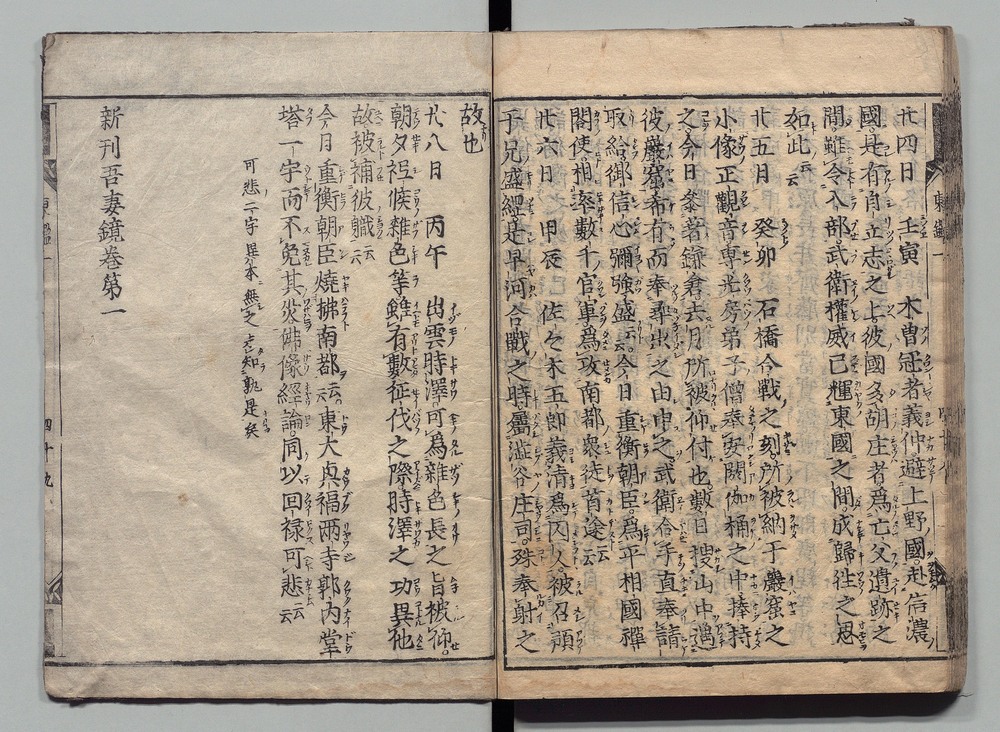 廿四日　壬寅　木曽冠者義仲避上野國赴信濃
國是有自立志之上彼國多胡庄者爲亡父遺跡之
間雖令入部武衛權威已輝東國之間成歸往之思
如此云云
廿五日　癸卯　石橋合戰之刻所被納于巖窟之
小像正觀音専光房弟子僧奉安閼伽桶之中捧持
之今日参著鎌倉去月所被仰付也數日搜山中遇
彼巖窟希有而奉尋出之由申之武衛合手直奉請
取給御信心彌強盛云云今日重衡朝臣爲平相國禪
閤使相率數千官軍爲攻南都衆徒首途云云
廿六日　甲辰　佐々木五郎義清爲囚人被召預
于兄盛經是早河合戰之時屬澁谷庄司殊奉射之
故也
廿八日　丙午　出雲時澤可爲雜色長之旨被仰
朝夕祗候雜色等雖有數征伐之際時澤之功異他
故被補彼軄云云
今日重衡朝臣燒拂南都云云東大興福兩寺郭内堂
塔一宇而不免其災佛像經論同以回禄可悲云云
可悲二字異本無之
新刊吾妻鏡巻第一
東鑑一
四十九
東鑑一